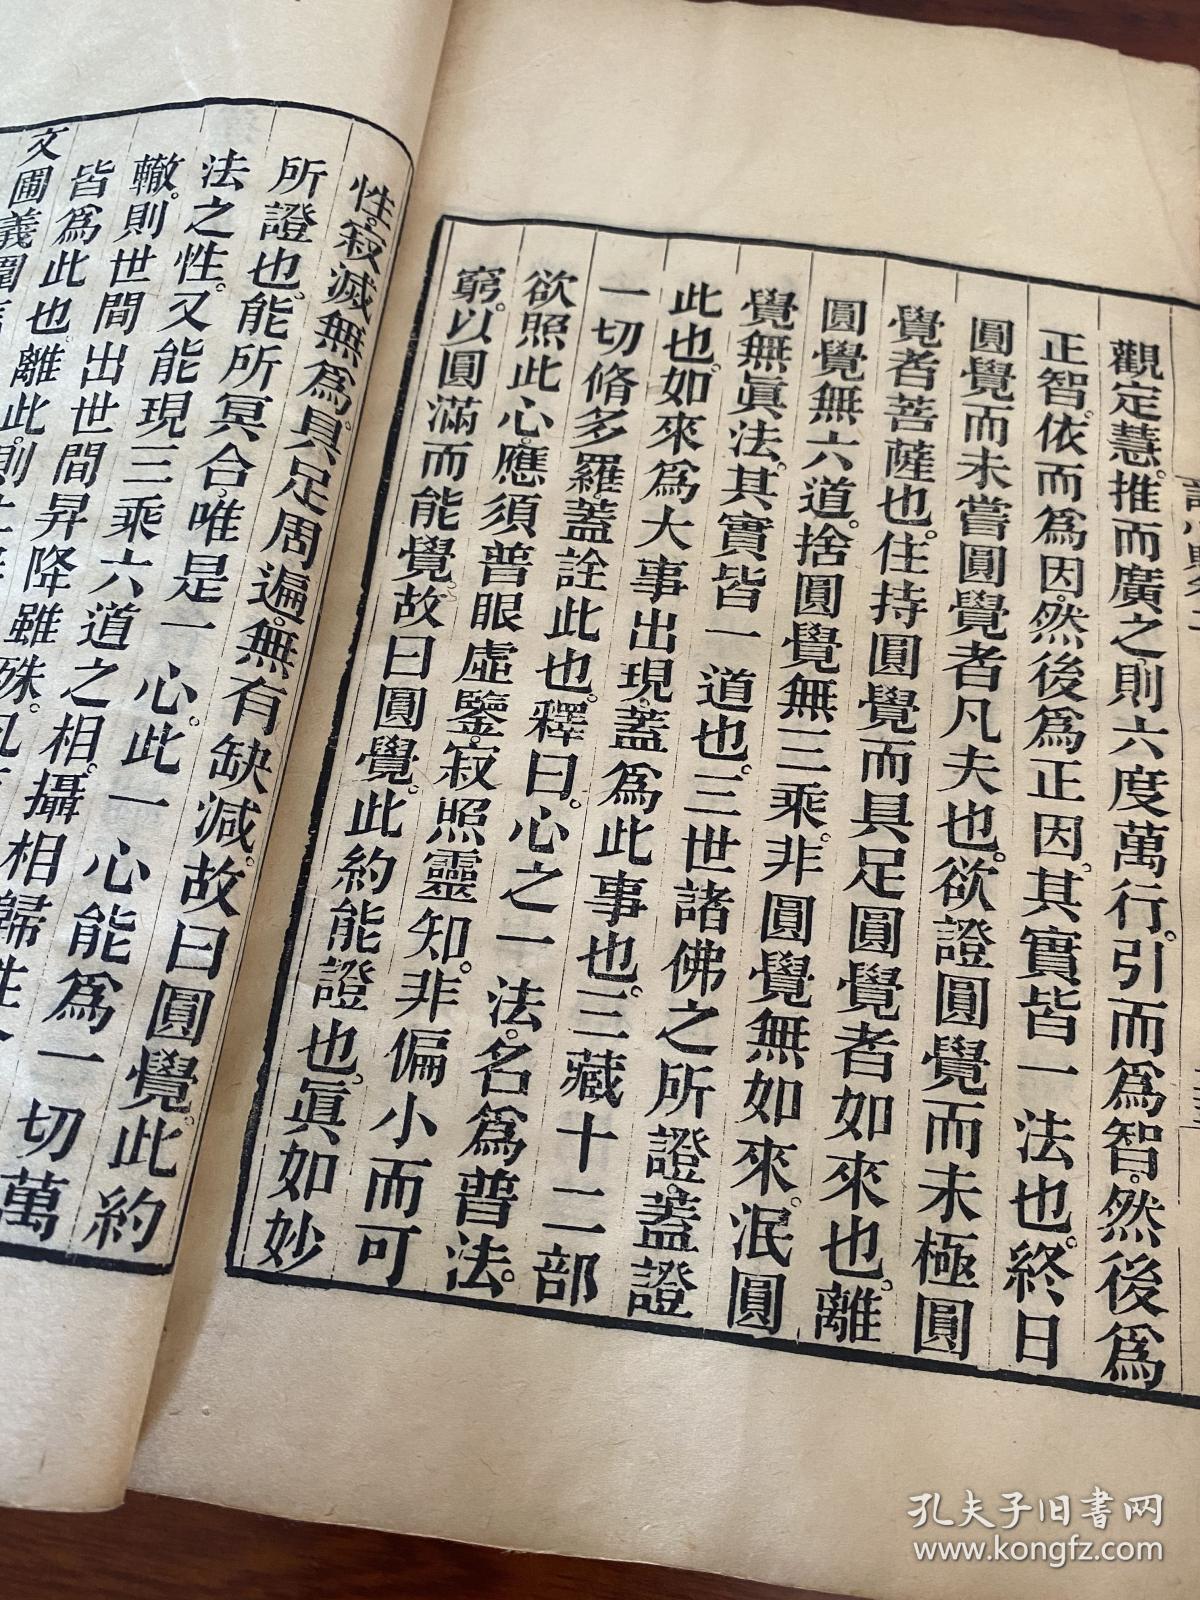 觀定慧。推而廣之。則六度萬行。引而爲智。然後爲
正智。依而爲因。然後爲正因。其實皆一法也。終日
圓覺而未嘗圓覺者凡夫也。欲證圓覺而未極圓
覺者菩薩也。住持圓覺而具足圓覺者如來也。離
圓覺無六道。捨圓覺無三乘。非圓覺無如來。泯圓
覺無眞法。其實皆一道也。三世諸佛之所證。蓋證
此也。如來爲大事出現。蓋爲此事也。三藏十二部
一切脩多羅。蓋詮此也。釋曰。心之一法。名爲普法。
欲照此心。應須普眼虛鑒。寂照靈知。非偏小而可
窮。以圓滿而能覺。故曰圓覺。此約能證也。眞如妙
性。寂滅無爲。具足周遍。無有缺減。故曰圓覺。此約
所證也。能所冥合。唯是一心。此一心能爲一切萬
法之性。又能現三乘六道之相。攝相歸性
轍。則世間出世間昇降雖殊。凡
皆爲此也。離此則
文圃義
孔夫子旧书网
www.kongfz.com